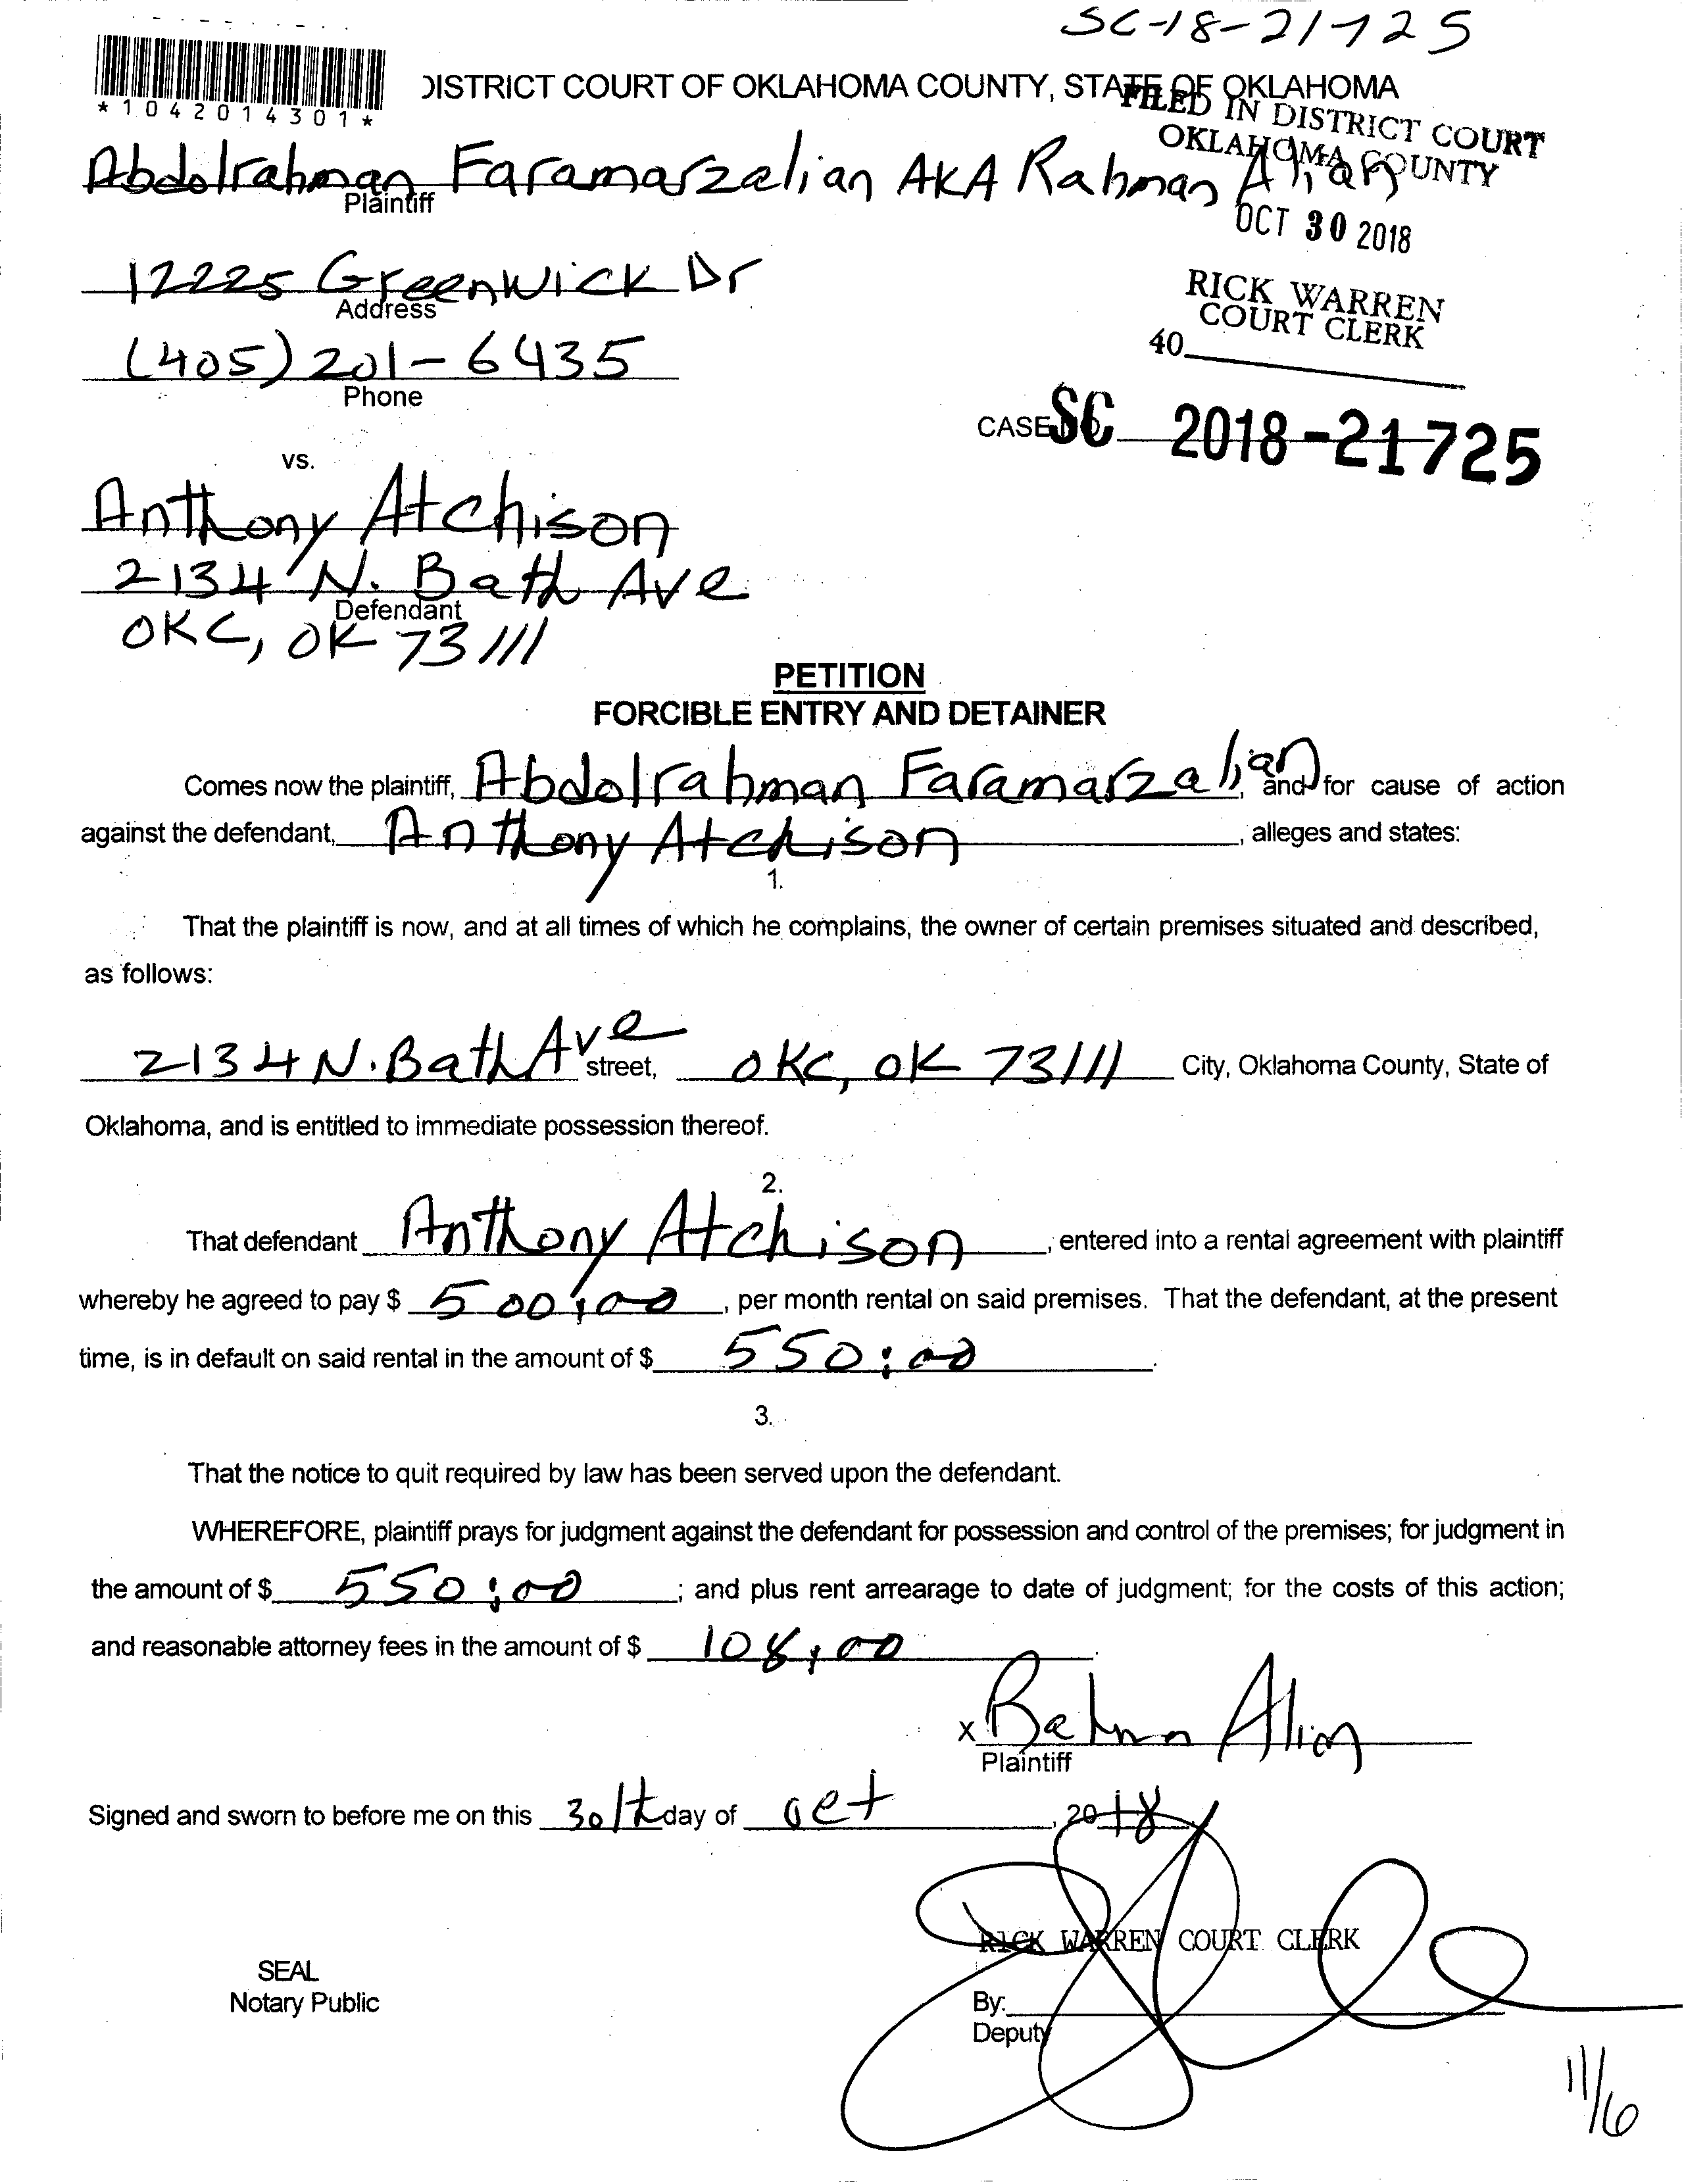 SC-18-21725
*1042014301*
DISTRICT COURT OF OKLAHOMA COUNTY, STATE OF OKLAHOMA
FILED IN DISTRICT COURT
OKLAHOMA COUNTY
Abdolrahman Faramarzalian AKA Rahman Alian
Plaintiff
OCT 30 2018
12225 Greenwick Dr
Address
RICK WARREN
COURT CLERK
40
(405) 201-6435
Phone
CASE NO. SC 2018-21725
vs.
Anthony Atchison
2134 N. Bath Ave
Defendant
OKC, OK 73111
PETITION
FORCIBLE ENTRY AND DETAINER
Comes now the plaintiff, Abdolrahman Faramarzalian, and for cause of action
against the defendant, Anthony Atchison, alleges and states:
1.
That the plaintiff is now, and at all times of which he complains, the owner of certain premises situated and described,
as follows:
2134 N. Bath Ave street, OKC, OK 73111 City, Oklahoma County, State of
Oklahoma, and is entitled to immediate possession thereof.
2.
That defendant Anthony Atchison, entered into a rental agreement with plaintiff
whereby he agreed to pay $ 500,00, per month rental on said premises. That the defendant, at the present
time, is in default on said rental in the amount of $ 550:00.
3.
That the notice to quit required by law has been served upon the defendant.
WHEREFORE, plaintiff prays for judgment against the defendant for possession and control of the premises; for judgment in
the amount of $ 550:00; and plus rent arrearage to date of judgment; for the costs of this action;
and reasonable attorney fees in the amount of $ 108,00.
x Rahman Alian
Plaintiff
Signed and sworn to before me on this 30th day of Oct, 2018.
RICK WARREN COURT CLERK
SEAL
Notary Public
By:
Deputy
11/6